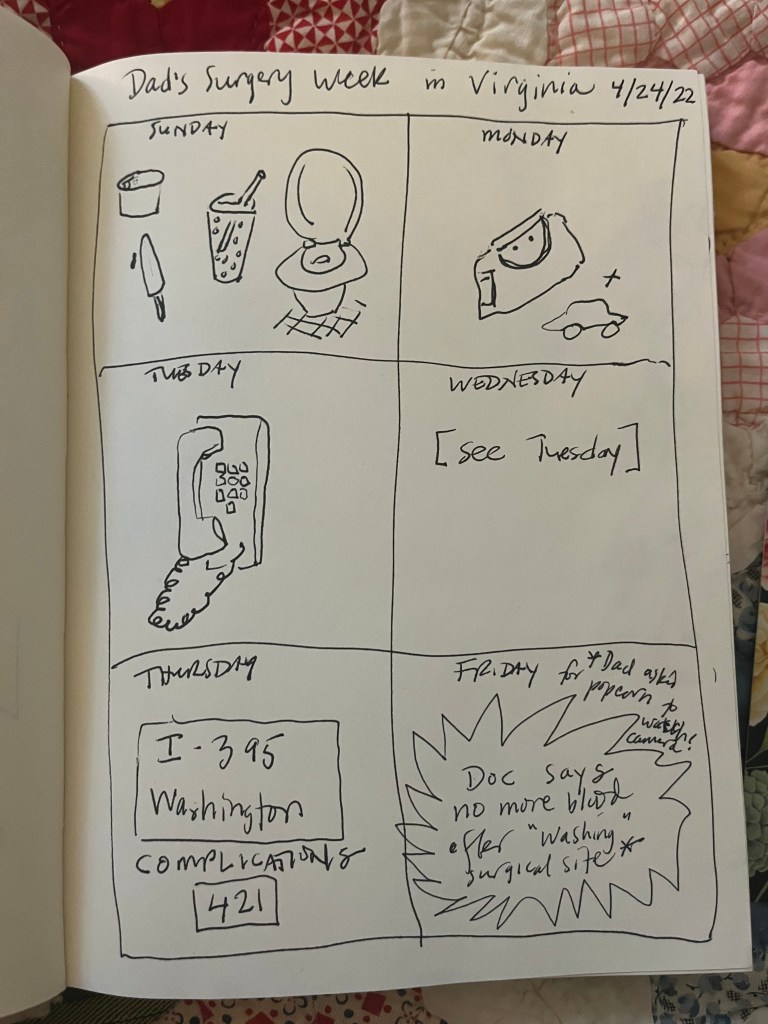 Dad's Surgery Week in Virginia 4/24/22
SUNDAY
MONDAY
TUESDAY
WEDNESDAY
[see Tuesday]
THURSDAY
I-395
Washington
COMPLICATIONS
421
FRIDAY
Doc says
no more blood
after "washing"
surgical site*
*Dad asked
for popcorn to
watch
camera!